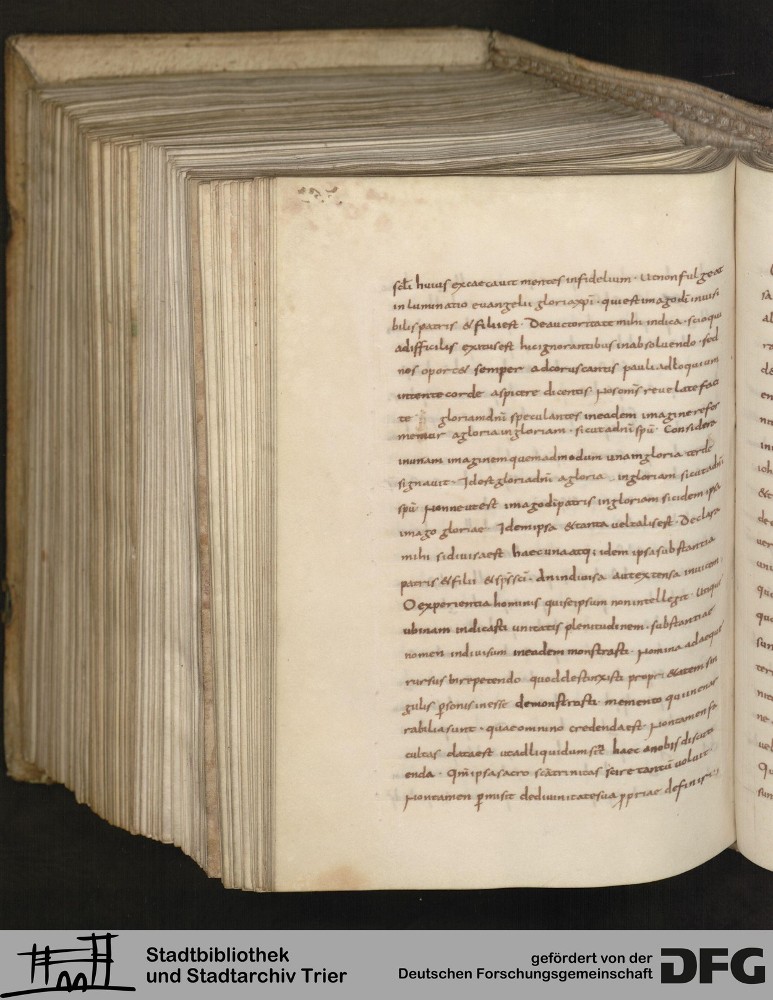 scłi huius excaecauit mentes infidelium · Ut non fulgeat
inluminatio euangelii gloriae xp̄i · qui est imago dī inuisi
bilis patris & filii est · De auctoritate mihi indica · scio qui
a difficilis exitus est hic ignorantibus in absoluendo · sed
nos oport& semper ad coruscantis pauli adloquium
intente corde aspicere dicentis Nos om̄s reuelate faci
te gloriam dn̄i speculantes in eadem imagine refor
memur a gloria in gloriam · sicut a dn̄i spū · Considera
in unam imaginem quemadmodum unam gloria
signauit · Id est gloria dn̄i a gloria in gloriam sicut a dn̄i
spū Nonne ut est imago dī patris in gloriam sic idem ipsa
imago gloriae · Idem ipsa & tanta uel talis est · Declara
mihi si diuisa est haec una atq; idem ipsa substantia
patris & filii & sp̄s sc̄i · An indiuisa aut extensa inuicem
O experientia hominis qui seipsum non intellegit · Utique
ubi nam indicasti unitatis plenitudinem · substantiae
nomen indiuisum in eadem monstrasti · Nomina adaeque
rursus birepetendo quod destinxisti propri &atem sin
gulis personis inesse demonstrasti memento quia
rabilia sunt · quae omnino credenda est Non tamen fa
cultas data est ut ad liquidum sint haec a nobis discuti
enda · Qm̄ ipsa sacro sc̄a trinitas scire tantū uoluit
Non tamen permisit de diuinitate sua propriae definiri
Stadtbibliothek
und Stadtarchiv Trier
gefördert von der
Deutschen Forschungsgemeinschaft
DFG